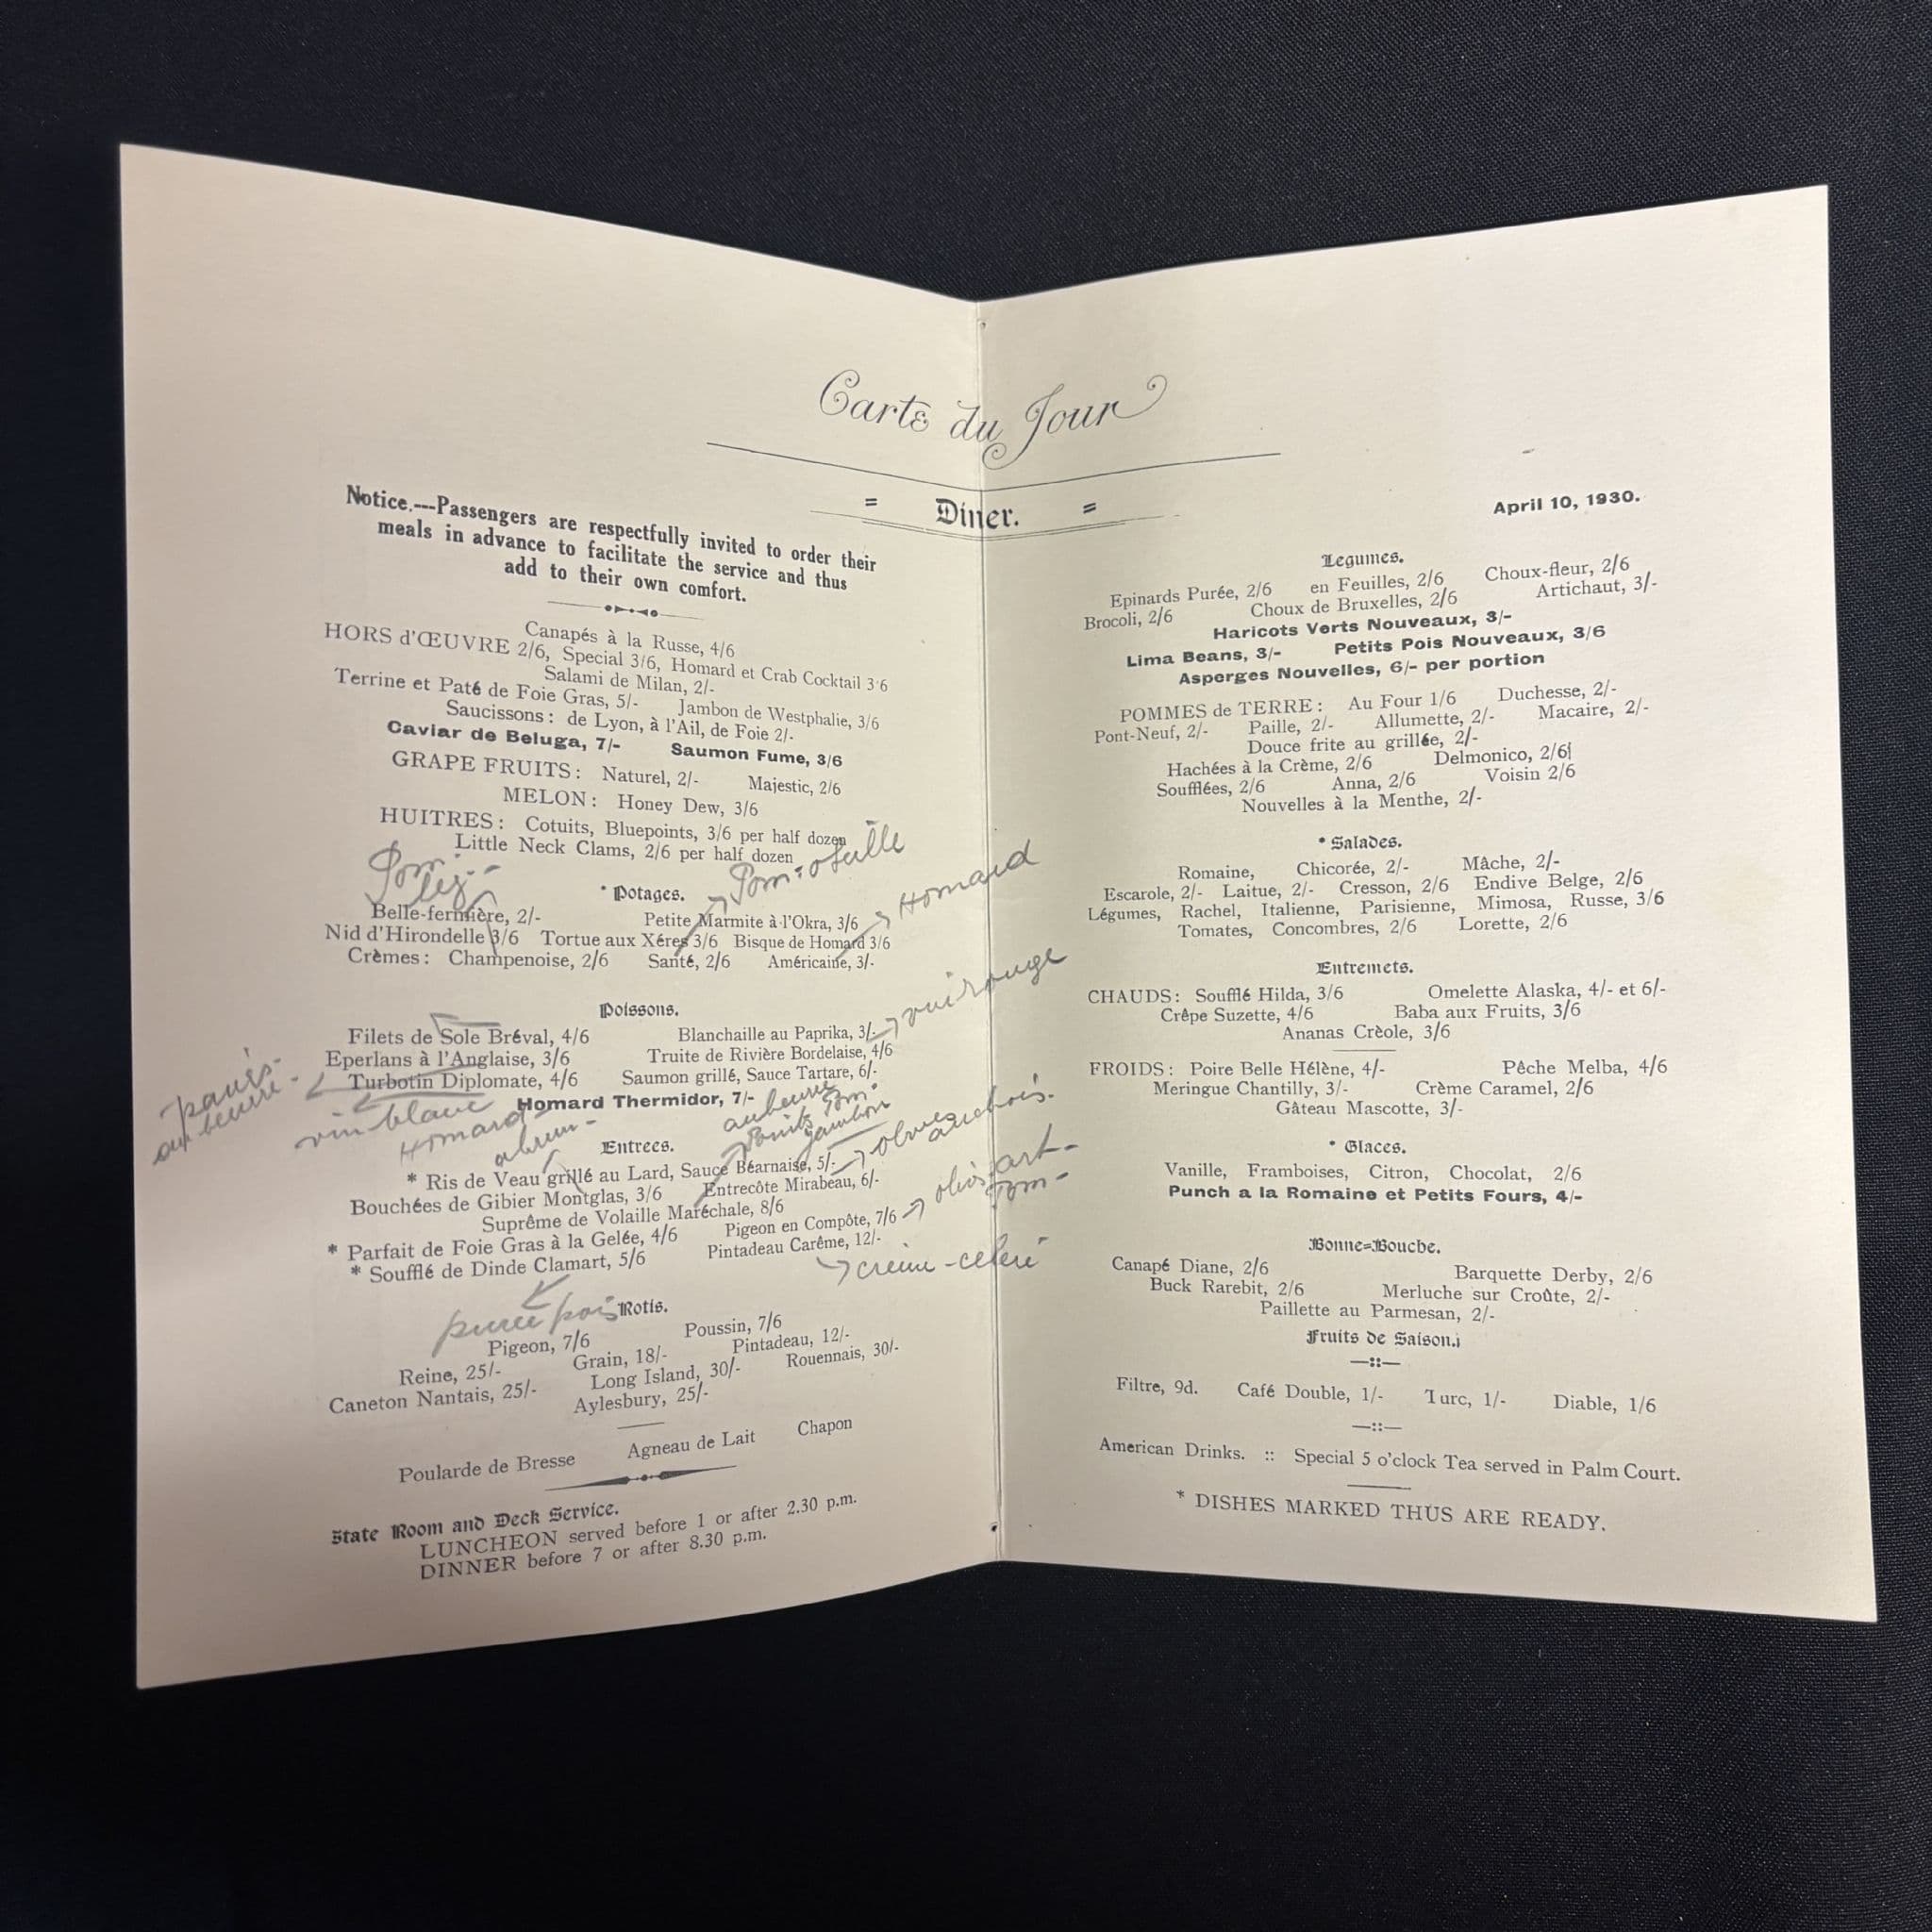 Carte du Jour
= Diner. =
Notice.---Passengers are respectfully invited to order their
meals in advance to facilitate the service and thus
add to their own comfort.
Canapés à la Russe, 4/6
HORS d'ŒUVRE 2/6, Special 3/6, Homard et Crab Cocktail 3'6
Salami de Milan, 2/-
Terrine et Paté de Foie Gras, 5/- Jambon de Westphalie, 3/6
Saucissons: de Lyon, à l'Ail, de Foie 2/-
Caviar de Beluga, 7/- Saumon Fume, 3/6
GRAPE FRUITS: Naturel, 2/- Majestic, 2/6
MELON: Honey Dew, 3/6
HUITRES: Cotuits, Bluepoints, 3/6 per half dozen
Little Neck Clams, 2/6 per half dozen
Pom:
Pom:
Homard
* Potages.
Belle-fermière, 2/- Petite Marmite à l'Okra, 3/6
Nid d'Hirondelle 3/6 Tortue aux Xéres 3/6 Bisque de Homard 3/6
Crèmes: Champenoise, 2/6 Santé, 2/6 Américaine, 3/-
Poissons.
Filets de Sole Bréval, 4/6 Blanchaille au Paprika, 3/-
Eperlans à l'Anglaise, 3/6 Truite de Rivière Bordelaise, 4/6
Turbotin Diplomate, 4/6 Saumon grillé, Sauce Tartare, 6/-
Homard Thermidor, 7/-
rouge
au beurre
vin blanc
Homard
au beurre
jambon
Entrees.
* Ris de Veau grillé au Lard, Sauce Béarnaise, 5/-
Bouchées de Gibier Montglas, 3/6 Entrecôte Mirabeau, 6/-
Suprême de Volaille Maréchale, 8/6
* Parfait de Foie Gras à la Gelée, 4/6 Pigeon en Compôte, 7/6
* Soufflé de Dinde Clamart, 5/6 Pintadeau Carême, 12/-
olives
art-
pom-
purée pois
Rotis.
Pigeon, 7/6 Poussin, 7/6
Reine, 25/- Grain, 18/- Pintadeau, 12/-
Caneton Nantais, 25/- Long Island, 30/- Rouennais, 30/-
Aylesbury, 25/-
Poularde de Bresse Agneau de Lait Chapon
State Room and Deck Service.
LUNCHEON served before 1 or after 2.30 p.m.
DINNER before 7 or after 8.30 p.m.
April 10, 1930.
Legumes.
Epinards Purée, 2/6 en Feuilles, 2/6 Choux-fleur, 2/6
Brocoli, 2/6 Choux de Bruxelles, 2/6 Artichaut, 3/-
Haricots Verts Nouveaux, 3/-
Lima Beans, 3/- Petits Pois Nouveaux, 3/6
Asperges Nouvelles, 6/- per portion
POMMES de TERRE: Au Four 1/6 Duchesse, 2/-
Pont-Neuf, 2/- Paille, 2/- Allumette, 2/- Macaire, 2/-
Douce frite au grillée, 2/-
Hachées à la Crème, 2/6 Delmonico, 2/6
Soufflées, 2/6 Anna, 2/6 Voisin 2/6
Nouvelles à la Menthe, 2/-
* Salades.
Romaine, Chicorée, 2/- Mâche, 2/-
Escarole, 2/- Laitue, 2/- Cresson, 2/6 Endive Belge, 2/6
Légumes, Rachel, Italienne, Parisienne, Mimosa, Russe, 3/6
Tomates, Concombres, 2/6 Lorette, 2/6
Entremets.
CHAUDS: Soufflé Hilda, 3/6 Omelette Alaska, 4/- et 6/-
Crêpe Suzette, 4/6 Baba aux Fruits, 3/6
Ananas Crèole, 3/6
FROIDS: Poire Belle Hélène, 4/- Pêche Melba, 4/6
Meringue Chantilly, 3/- Crème Caramel, 2/6
Gâteau Mascotte, 3/-
* Glaces.
Vanille, Framboises, Citron, Chocolat, 2/6
Punch a la Romaine et Petits Fours, 4/-
Bonne=Bouche.
Canapé Diane, 2/6 Barquette Derby, 2/6
Buck Rarebit, 2/6 Merluche sur Croûte, 2/-
Paillette au Parmesan, 2/-
Fruits de Saison.
Filtre, 9d. Café Double, 1/- Turc, 1/- Diable, 1/6
American Drinks. :: Special 5 o'clock Tea served in Palm Court.
* DISHES MARKED THUS ARE READY.